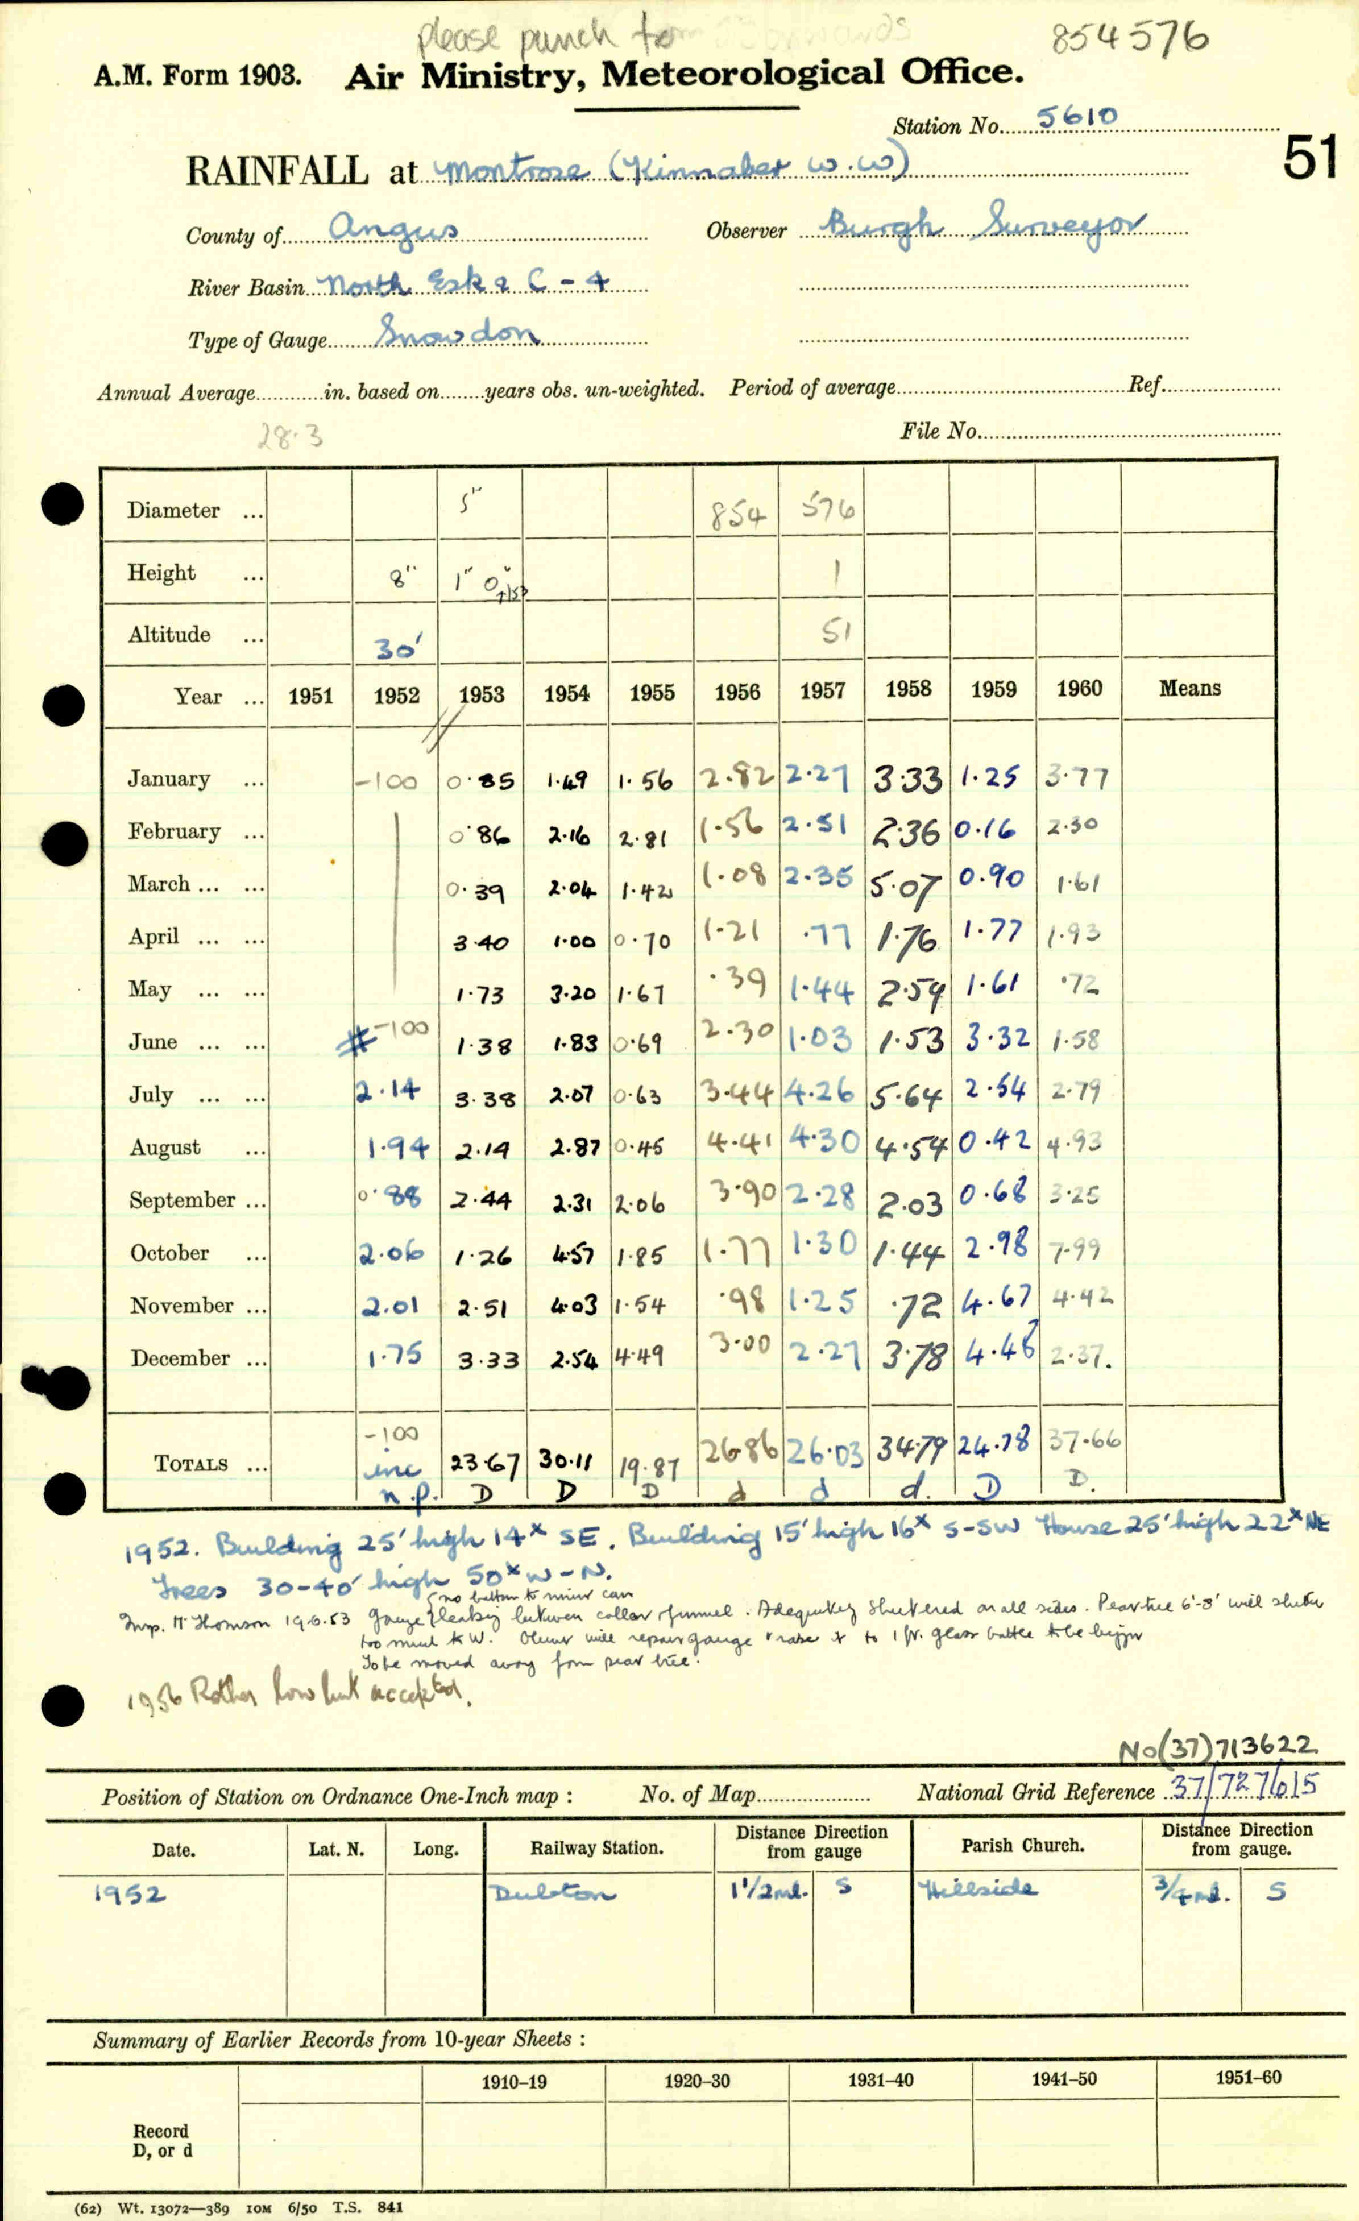 please punch
854576
A.M. Form 1903. Air Ministry, Meteorological Office.
Station No. 5610
51
RAINFALL at Montrose (Kinnaber W.W)
County of Angus Observer Burgh Surveyor
River Basin North Esk & C - 4
Type of Gauge Snowdon
Annual Average in. based on years obs. un-weighted. Period of average Ref.
28.3
File No.
Diameter ... 5" 854 576
Height ... 8" 1" 0" 7/53 1
Altitude ... 30' 51
Year ... 1951 1952 1953 1954 1955 1956 1957 1958 1959 1960 Means
January ... -100 0.85 1.49 1.56 2.82 2.27 3.33 1.25 3.77
February ... 0.86 2.16 2.81 1.56 2.51 2.36 0.16 2.30
March ... ... 0.39 2.04 1.42 1.08 2.35 5.07 0.90 1.61
April ... ... 3.40 1.00 0.70 1.21 .77 1.76 1.77 1.93
May ... ... 1.73 3.20 1.67 .39 1.44 2.54 1.61 .72
June ... ... # -100 1.38 1.83 0.69 2.30 1.03 1.53 3.32 1.58
July ... ... 2.14 3.38 2.07 0.63 3.44 4.26 5.64 2.54 2.79
August ... 1.94 2.14 2.87 0.45 4.41 4.30 4.54 0.42 4.93
September ... 0.88 2.44 2.31 2.06 3.90 2.28 2.03 0.68 3.25
October ... 2.06 1.26 4.57 1.85 1.77 1.30 1.44 2.98 7.99
November ... 2.01 2.51 4.03 1.54 .98 1.25 .72 4.67 4.42
December ... 1.75 3.33 2.54 4.49 3.00 2.27 3.78 4.48 2.37.
-100
TOTALS ... inc 23.67 30.11 19.87 26.86 26.03 34.79 24.78 37.66
n.p. D D D d d d. D D.
1952. Building 25' high 14x SE. Building 15' high 16x S-SW House 25' high 22x NE
Trees 30-40' high 50x W-N.
no bottom to inner can
Insp. H Thomson 19.6.53 gauge leaking between collar & funnel. Adequately sheltered on all sides. Pear tree 6'-8' will shelter
too much to W. Obsvr will repair gauge & raise it to 1 ft. glass bottle to be
To be moved away from pear tree.
1956 Rather low but accepted.
No (37)713622
Position of Station on Ordnance One-Inch map : No. of Map National Grid Reference 37/727615
Date. Lat. N. Long. Railway Station. Distance from Direction gauge Parish Church. Distance from Direction gauge.
1952 Dubton 1 1/2 ml. S Hillside 3/4 ml. S
Summary of Earlier Records from 10-year Sheets :
1910–19 1920–30 1931–40 1941–50 1951–60
Record
D, or d
(62) Wt. 13072—389 10M 6/50 T.S. 841